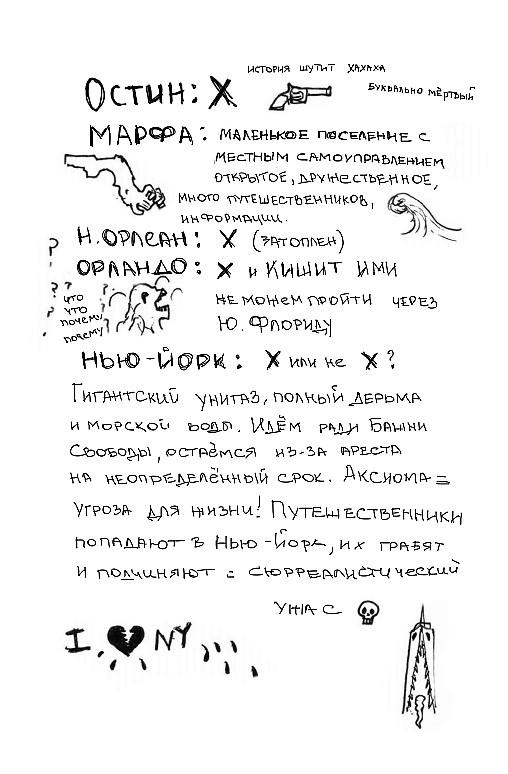 ИСТОРИЯ ШУТИТ ХАХАХА
ОСТИН: X
БУКВАЛЬНО МЁРТВЫЙ
МАРФА: МАЛЕНЬКОЕ ПОСЕЛЕНИЕ С
МЕСТНЫМ САМОУПРАВЛЕНИЕМ
ОТКРЫТОЕ, ДРУЖЕСТВЕННОЕ,
МНОГО ПУТЕШЕСТВЕННИКОВ,
ИНФОРМАЦИИ.
Н. ОРЛЕАН: X (ЗАТОПЛЕН)
ОРЛАНДО: X и КИШИТ ИМИ
? ? ? ?
ЧТО
ЧТО
ПОЧЕМУ
ПОЧЕМУ
НЕ МОЖЕМ ПРОЙТИ ЧЕРЕЗ
Ю. ФЛОРИДУ
НЬЮ-ЙОРК: X ИЛИ НЕ X?
ГИГАНТСКИЙ УНИТАЗ, ПОЛНЫЙ ДЕРЬМА
И МОРСКОЙ ВОДЫ. ИДЁМ РАДИ БАШНИ
СВОБОДЫ, ОСТАЁМСЯ ИЗ-ЗА АРЕСТА
НА НЕОПРЕДЕЛЁННЫЙ СРОК. АКСИОМА =
УГРОЗА ДЛЯ ЖИЗНИ! ПУТЕШЕСТВЕННИКИ
ПОПАДАЮТ В НЬЮ-ЙОРК, ИХ ГРАБЯТ
И ПОДЧИНЯЮТ = СЮРРЕАЛИСТИЧЕСКИЙ
УЖАС
I NY